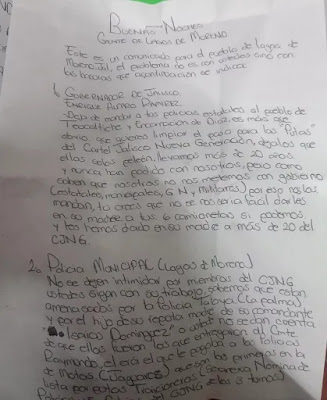 BUENAS NOCHES
GENTE DE LAGOS DE MORENO
Este es un comunicado para el pueblo de Lagos de
Moreno Jal, el problema no es con ustedes sino con
las lacras que acontinuación se indica:
1. GOBERNADOR DE JALISCO
ENRIQUE ALFARO RAMIREZ
-Deja de mandar a tus policias estatales al pueblo de
Teocaltiche y Encarnación de Diaz, es más que
obvio que quieres limpiar el paso para los "Putas"
del Cartel Jalisco Nueva Generación, dejalos que
ellos solos peleén, llevamos más de 20 años
y nunca han podido con nosotros, pero como
saben que nosotros no nos metemos con gobierno
(estatales, municipales, G.N y Militares) por eso nos los
mandan, tu crees que no se nos haria facil darles
en su madre a tus 6 camionetas si podemos,
y les hemos dado en su madre a más de 20 del
CJNG.
2. POLICIA MUNICIPAL (Lagos de Moreno)
No se dejen intimidar por miembros del CJNG
ustedes sigan con su trabajo, sabemos que estan
amenazados por la felicia Tanya (La palma)
y por el hijo de su reputa madre de su comandante
Dominguez" o usted no se dan cuenta
de que ellos fueron los que entregaron al Cmte
Raymundo, el era el que le pegaba a las felicias
de Matos (Jaguares) que son los primeros en la
lista por putos Traicioneros (Generosa Nomina de
CJNG ellos 3 tomos)